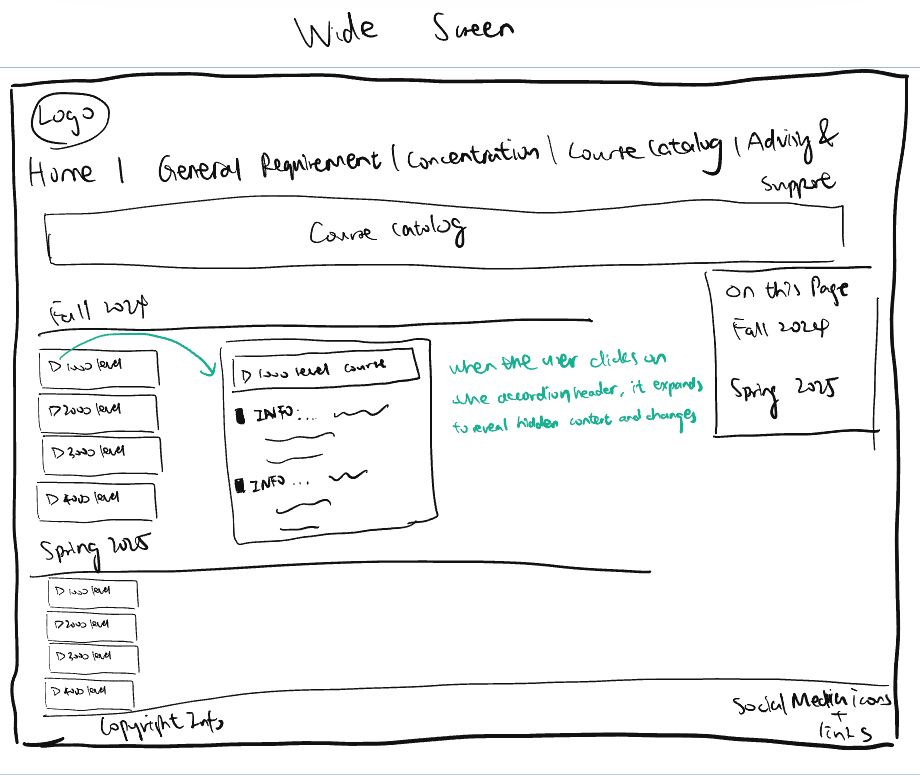 Wide Screen
Logo
Home | General Requirement | Concentration | Course Catalog | Advising &
Support
Course Catalog
Fall 2024
▷ 1000 level
▷ 2000 level
▷ 3000 level
▷ 4000 level
▷ 1000 level course
INFO:...
INFO ...
when the user clicks on
the accordion header, it expands
to reveal hidden content and changes
On this Page
Fall 2024
Spring 2025
Spring 2025
▷ 1000 level
▷ 2000 level
▷ 3000 level
▷ 4000 level
Copyright Info
Social Media icons
+
links